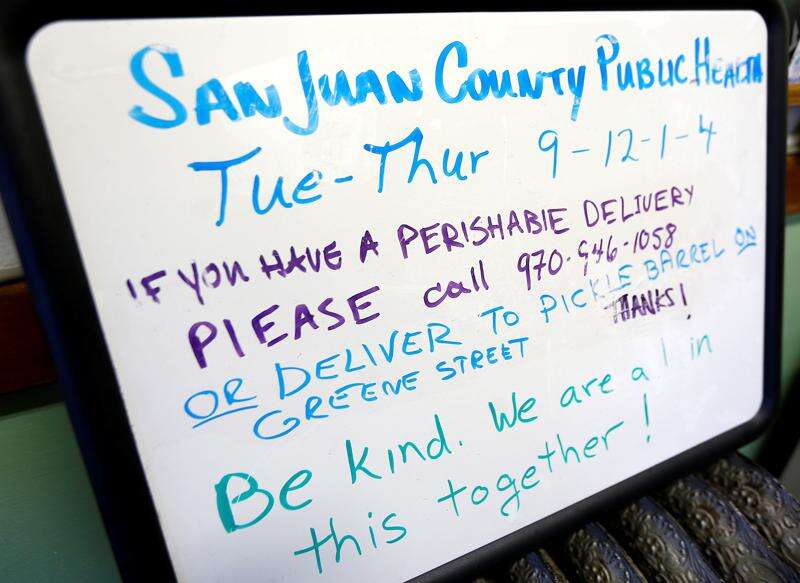 SAN JUAN COUNTY PUBLIC HEALTH
TUE-THUR 9-12-1-4
IF YOU HAVE A PERISHABLE DELIVERY
PLEASE call 970-946-1058
OR DELIVER TO PICKLE BARREL ON
GREENE STREET THANKS!
Be kind. We are all in
this together!